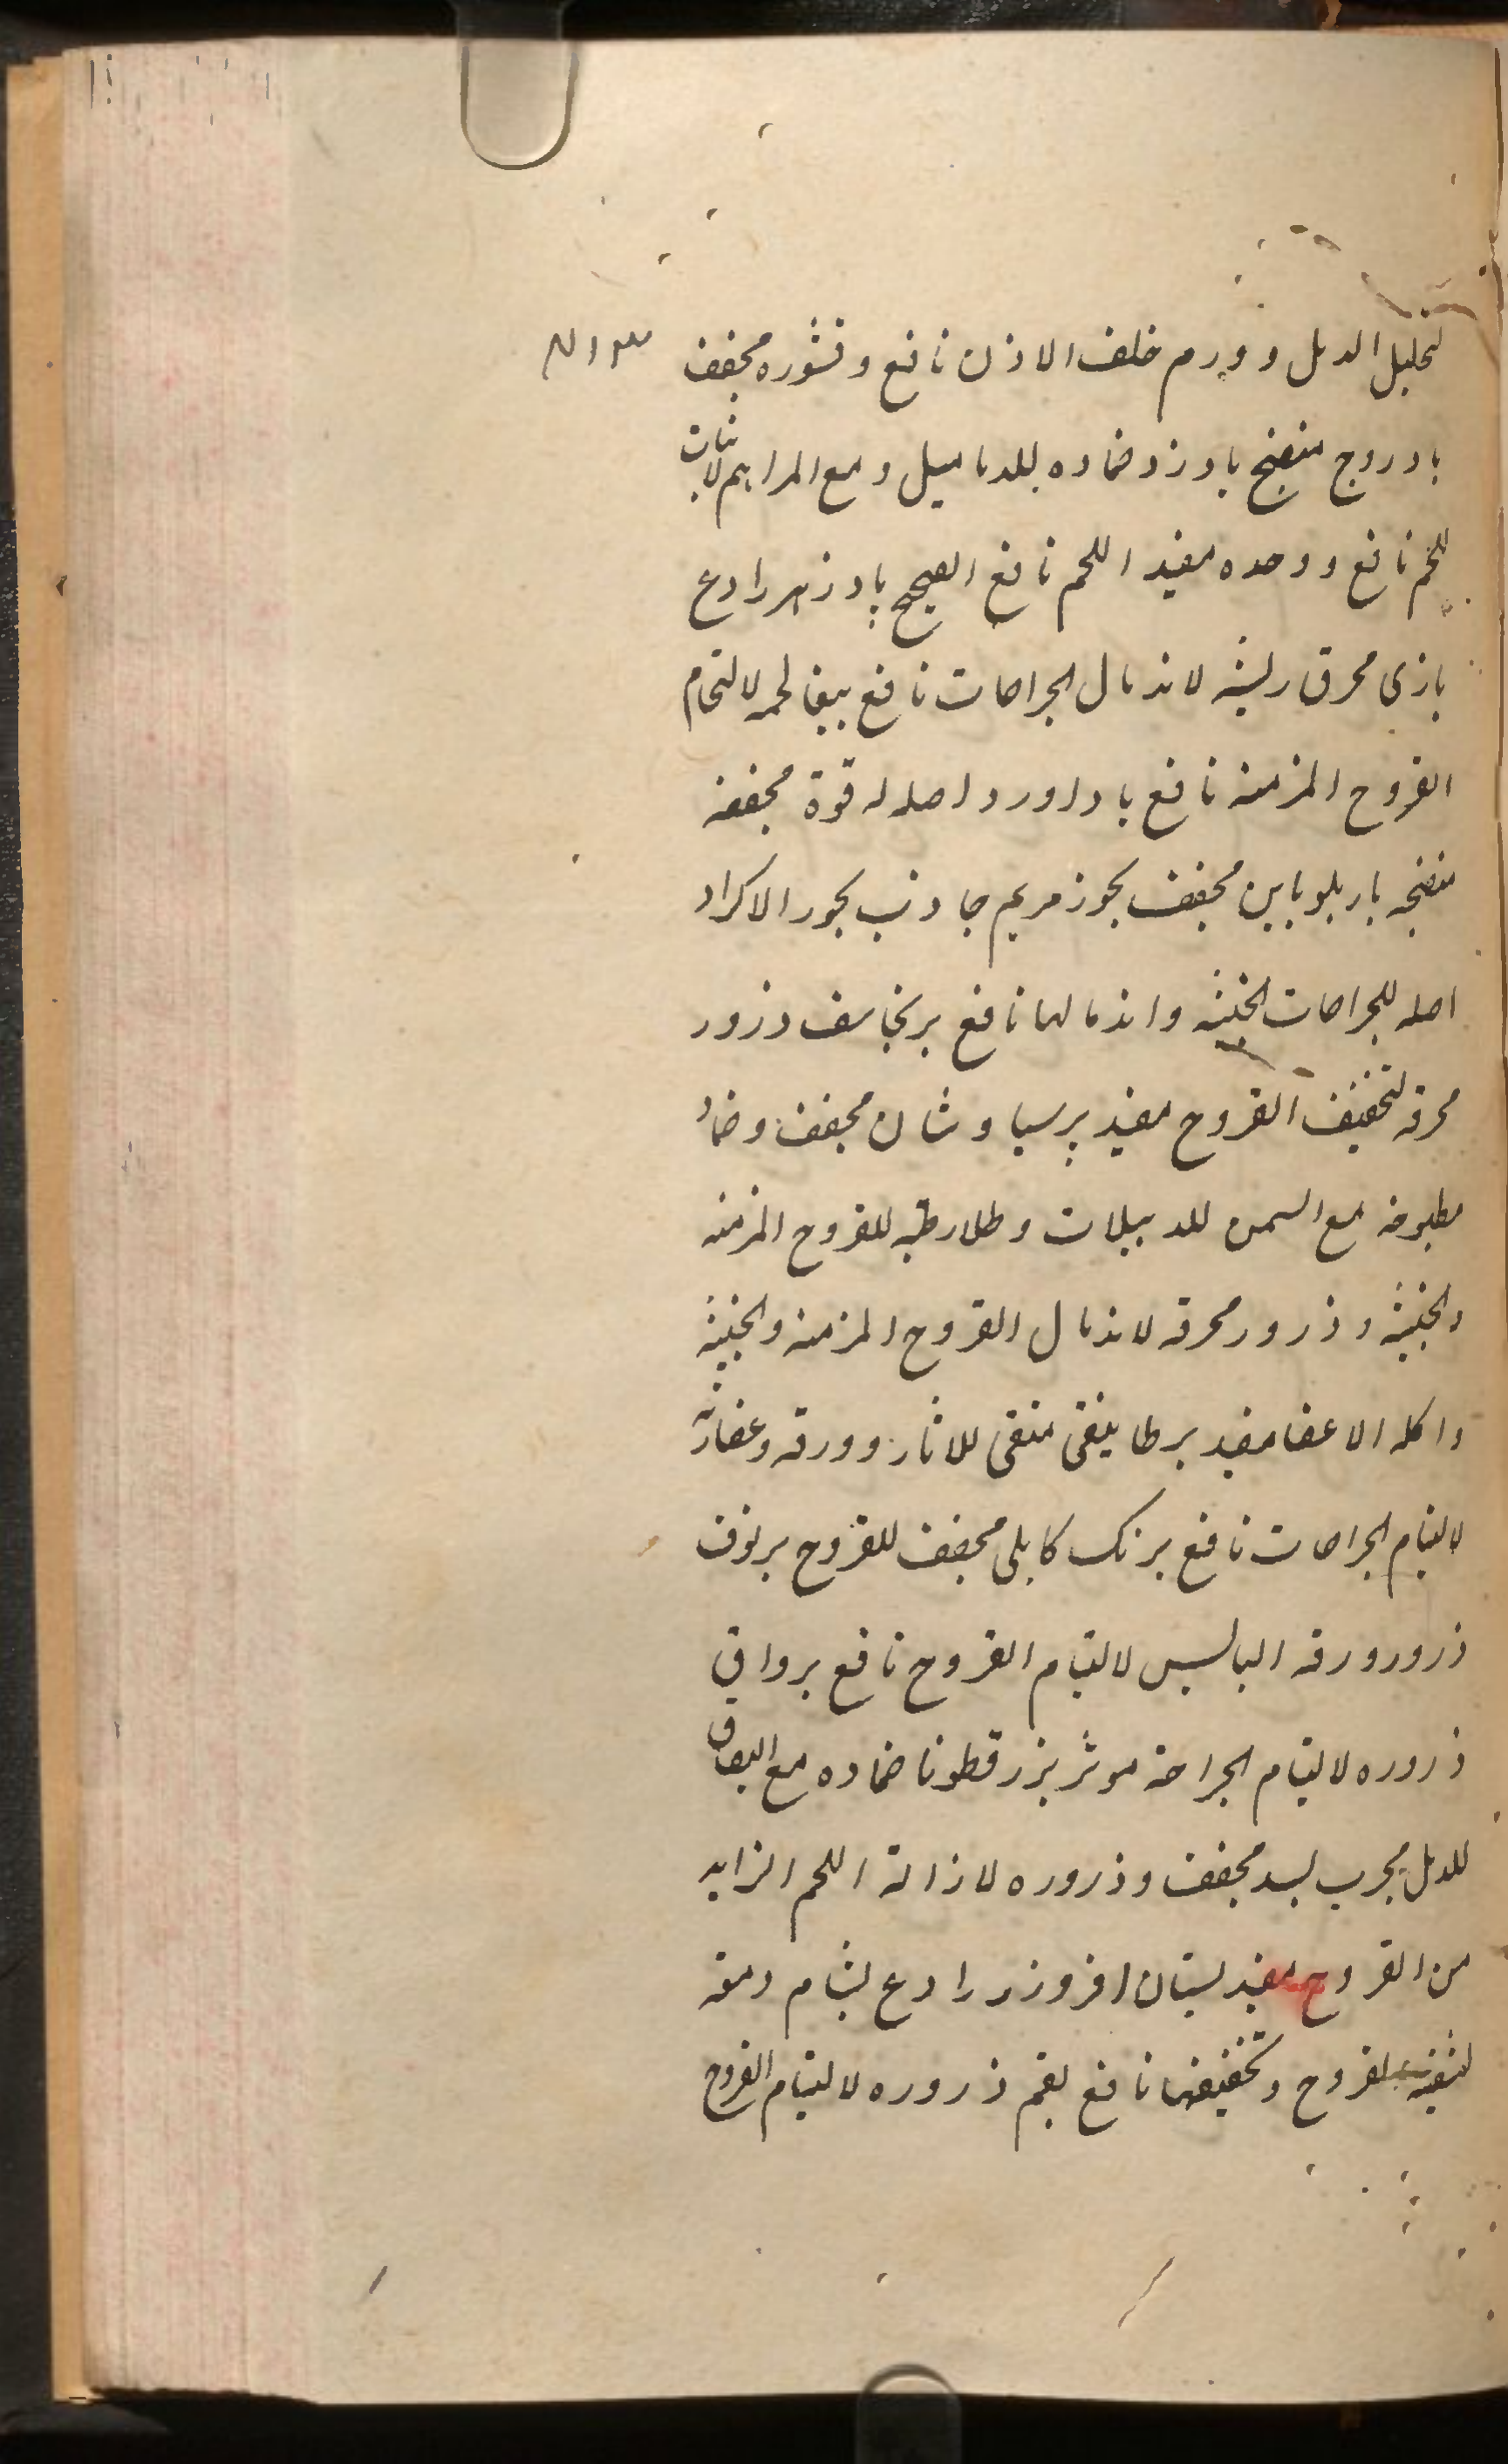 لتحلیل الدمل و ورم خلف الاذن نافع و قشوره مجفف
بادروج منضج بادزد ضماده للدمامیل و مع المراهم لانبات
اللحم نافع و وحده مفید اللحم نافع پادزهر رادع
بازی محرق ریشه لاندمال الجراحات نافع ببغا لحمه لالتحام
القروح المزمنه نافع باداورد اصله له قوة مجففه
منضجه باربلوبابین مجفف بخور مریم جاذب بخور الاکراد
اصله للجراحات الخبیثه و اندمالها نافع برنجاسف ذرور
محرقه لتجفیف القروح مفید پرسیاوشان مجفف و ضماد
مطبوخه مع السمن للدبیلات و طلا رطبه للقروح المزمنه
والخبیثه و ذرور محرقه لاندمال القروح المزمنه والخبیثه
واکله الاعضا مفید برطانیقی منقی للاثار و ورقه و عصارته
لالتیام الجراحات نافع برنک کابلی مجفف للقروح برنوف
ذرور ورقه الیابس لالتیام القروح نافع برواق
ذروره لالتیام الجراحة موثر بزرقطونا ضماده مع البصاق
للدمل مجرب بسد مجفف و ذروره لازالة اللحم الزاید
من القروح مفید بستان افروز رادع بشام
لتنقیه القروح و تجفیفها نافع بقم ذروره لالتیام القروح